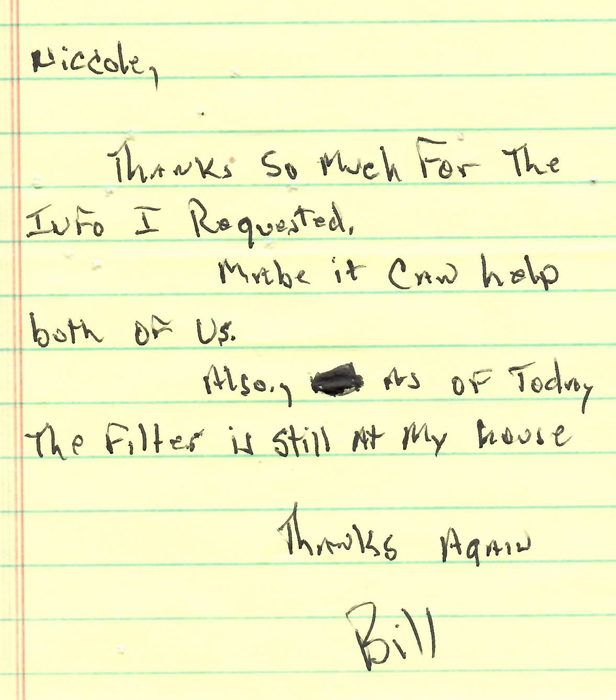 Niccole,
Thanks So Much For The
Info I Requested.
Mabe it Can help
both of Us.
Also, As of Today
The Filter is Still At My house
Thanks Again
Bill